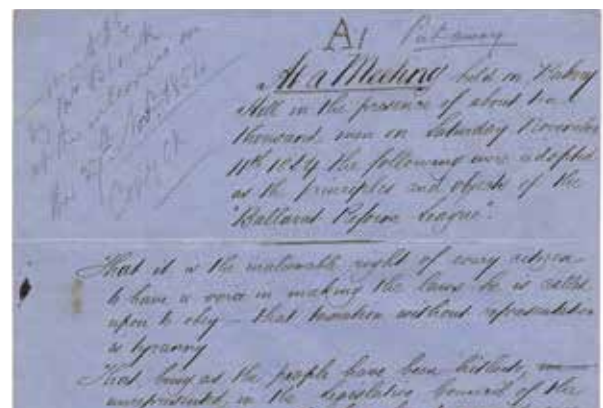 A1 Put away
handed in
by Mr Black
at the interview on
the 27th Nov. 1854
At a Meeting held on Bakery
Hill in the presence of about ten
thousand men on Saturday November
11th 1854 the following were adopted
as the principles and objects of the
"Ballarat Reform League".
That it is the inalienable right of every citizen
to have a voice in making the laws he is called
upon to obey — that taxation without representation
is tyranny
That, being as the people have been hitherto, un-
unrepresented, in the Legislative Council of the